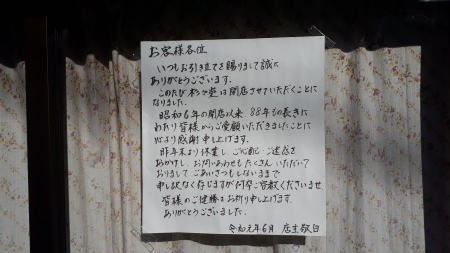 お客様各位
いつもお引き立てを賜りまして誠に
ありがとうございます。
このたび は閉店させていただくことに
なりました。
昭和6年の開店以来、88年もの長きに
わたり皆様からご愛顧いただきましたことに
心より感謝申し上げます。
昨年末より休業し、ご心配・ご迷惑を
おかけし、お問いあわせもたくさんいただいて
おりまして、ごあいさつもしないままで
申し訳なく存じますが何卒ご容赦くださいませ。
皆様のご健勝をお祈り申し上げます。
ありがとうございました。
令和元年6月 店主敬白